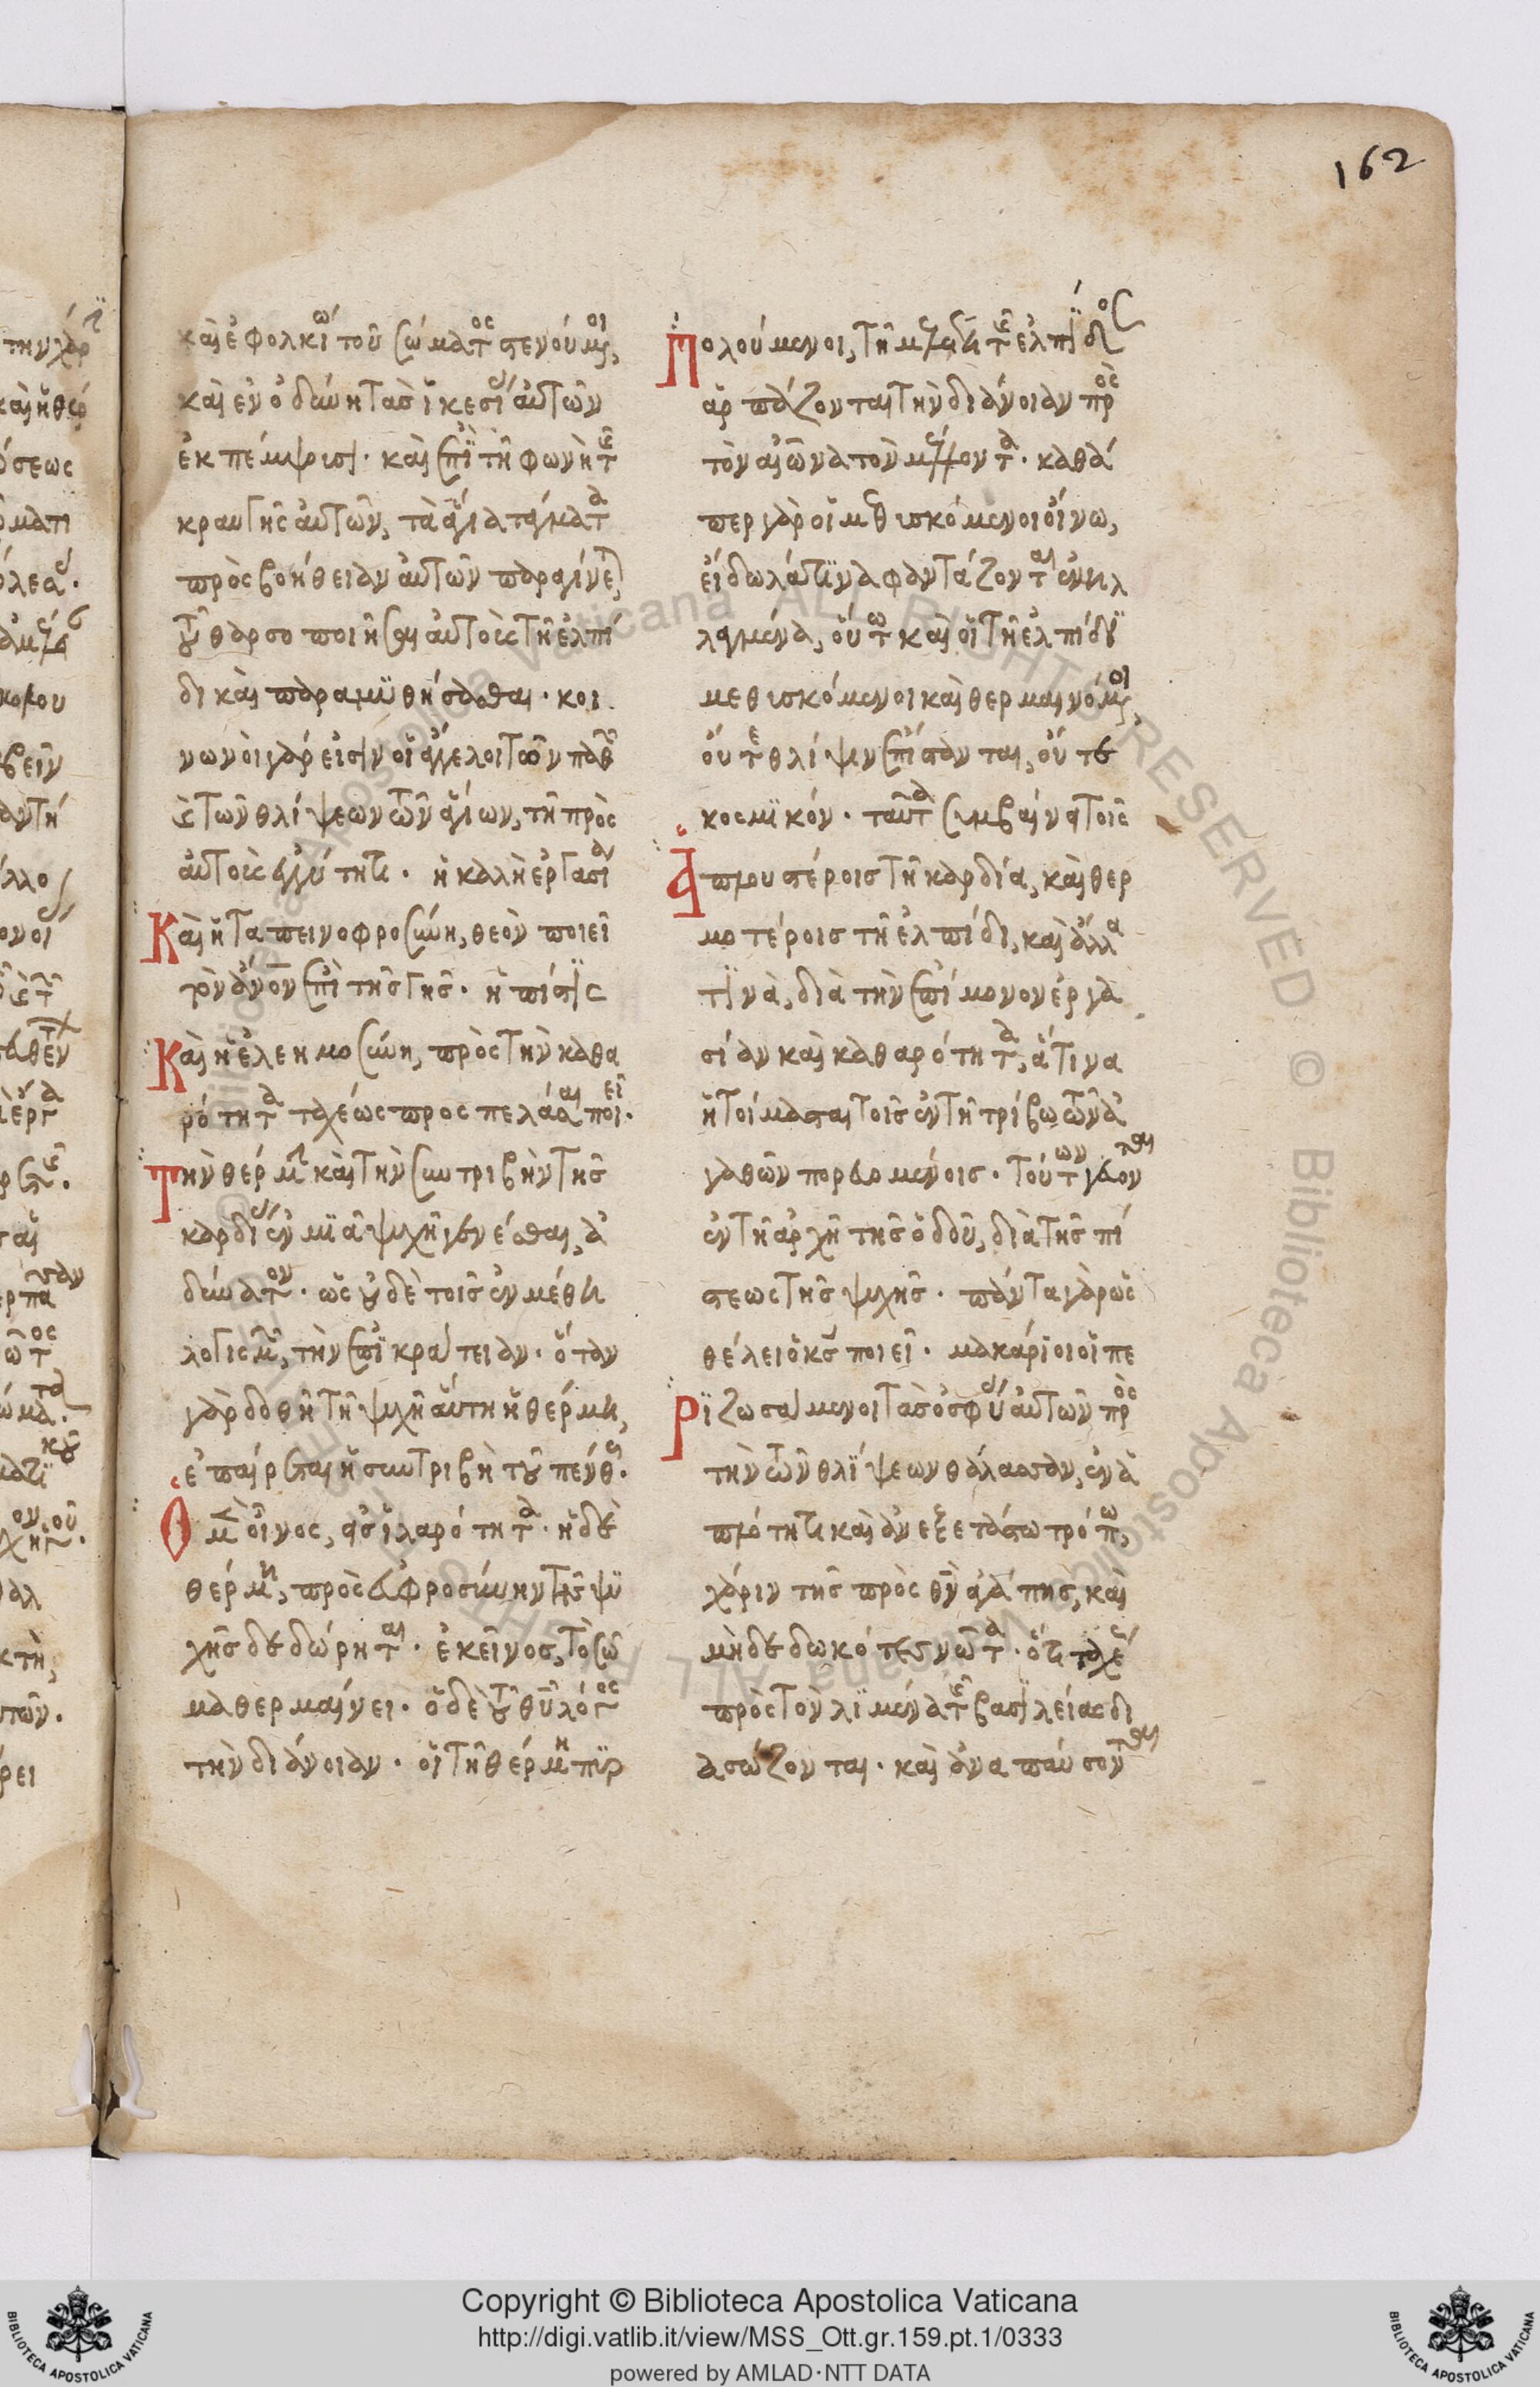 162
καὶ ἐφολκίω τοῦ σώματος στενούμενοι,
καὶ ἐν ὀδύνη τὰσ ἱκεσίας αὐτῶν
ἐκπέμψωσι· καὶ ἐπὶ τῆ φωνῆ τῆς
κραυγῆς αὐτῶν, τὰ ἅγια τάγματα
πρὸς βοήθειαν αὐτῶν παραγίνεται,
τοῦ θαρσοποιῆσαι αὐτοὺς τῆ ἐλπί
δι καὶ παραμυθήσασθαι· κοι
νωνοὶ γάρ εἰσιν οἱ ἄγγελοι τῶν παθῶν
καὶ τῶν θλίψεων τῶν ἁγίων, τῆ πρὸς
αὐτοὺς ἐγγύτητι· ἡ καλὴ ἐργασία
Καὶ ἡ ταπεινοφροσύνη, θεὸν ποιεῖ
τὸν ἄνον ἐπὶ τῆς γῆς· ἡ πίστις
Καὶ ἡ ἐλεημοσύνη, πρὸς τὴν καθα
ρότητα ταχέως προσπελάσαι ποιεῖ·
Τὴν θέρμην καὶ τὴν συντριβὴν τῆς
καρδίας ἐν μιᾶ ψυχῆ γενέσθαι, ἀ
δύνατον· ὡς οὐδὲ τοῖς ἐν μέθη
λογισμῶν, τὴν ἐπικράτειαν· ὅταν
γὰρ δοθῆ τῆ ψυχῆ αὕτη ἡ θέρμη,
ἐπαίρεται ἡ συντριβὴ τοῦ πένθους·
Ὁ μὲν οἶνος, εἰς ἱλαρότητα· ἡ δὲ
θέρμη, πρὸς εὐφροσύνην τῆς ψυ
χῆς δεδώρηται· ἐκεῖνος, τὸ σῶ
μα θερμαίνει· ὁ δὲ τοῦ θυ λόγος
τὴν διάνοιαν· οἱ τῆ θέρμη πυρ
Πολούμενοι, τῆ μελέτη τῆς ἐλπίδος
ἁρπάζονται τὴν διάνοιαν πρὸς
τὸν αἰῶνα τὸν μέλλοντα· καθά
περ γὰρ οἱ μεθυσκόμενοι οἴνω,
εἴδωλά τινα φαντάζονται ἐνηλ
λαγμένα, οὕτω καὶ οἱ τῆ ἐλπίδι
μεθυσκόμενοι καὶ θερμαινόμενοι
οὔτε θλίψιν ἐπίστανται, οὔτε
κοσμικόν· ταῦτα συμβαίνει τοῖς
Ἁπλουστέροις τῆ καρδία, καὶ θερ
μοτέροις τῆ ἐλπίδι, καὶ ἄλλα
τινὰ, διὰ τὴν ἐπίμονον ἐργα
σίαν καὶ καθαρότητα, ἅτινα
ἡτοίμασται τοῖς ἐν τῆ τρίβω τῶν ἀ
γαθῶν πορευομένοις· τούτων γεύονται
ἐν τῆ ἀρχῆ τῆς ὁδοῦ, διὰ τῆς πί
στεως τῆς ψυχῆς· πάντα γὰρ ὡς
θέλει ὁ κς ποιεῖ· μακάριοι οἱ πε
Ριζωσάμενοι τὰς ὀσφύας αὐτῶν πρὸς
τὴν τῶν θλίψεων θάλασσαν, ἐν ἁ
πλότητι καὶ ἀνεξετάστω τρόπω,
χάριν τῆς πρὸς θν ἀγάπης, καὶ
μὴ δεδωκότες νῶτα· ὅτι ταχέως
πρὸς τὸν λιμένα τῆς βασιλείας δι
ασώζονται· καὶ ἀναπαύσονται
Copyright © Biblioteca Apostolica Vaticana
http://digi.vatlib.it/view/MSS_Ott.gr.159.pt.1/0333
powered by AMLAD·NTT DATA